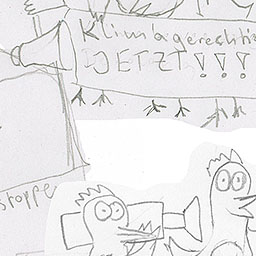 Klimagerechti
JETZT!!!
stoppe